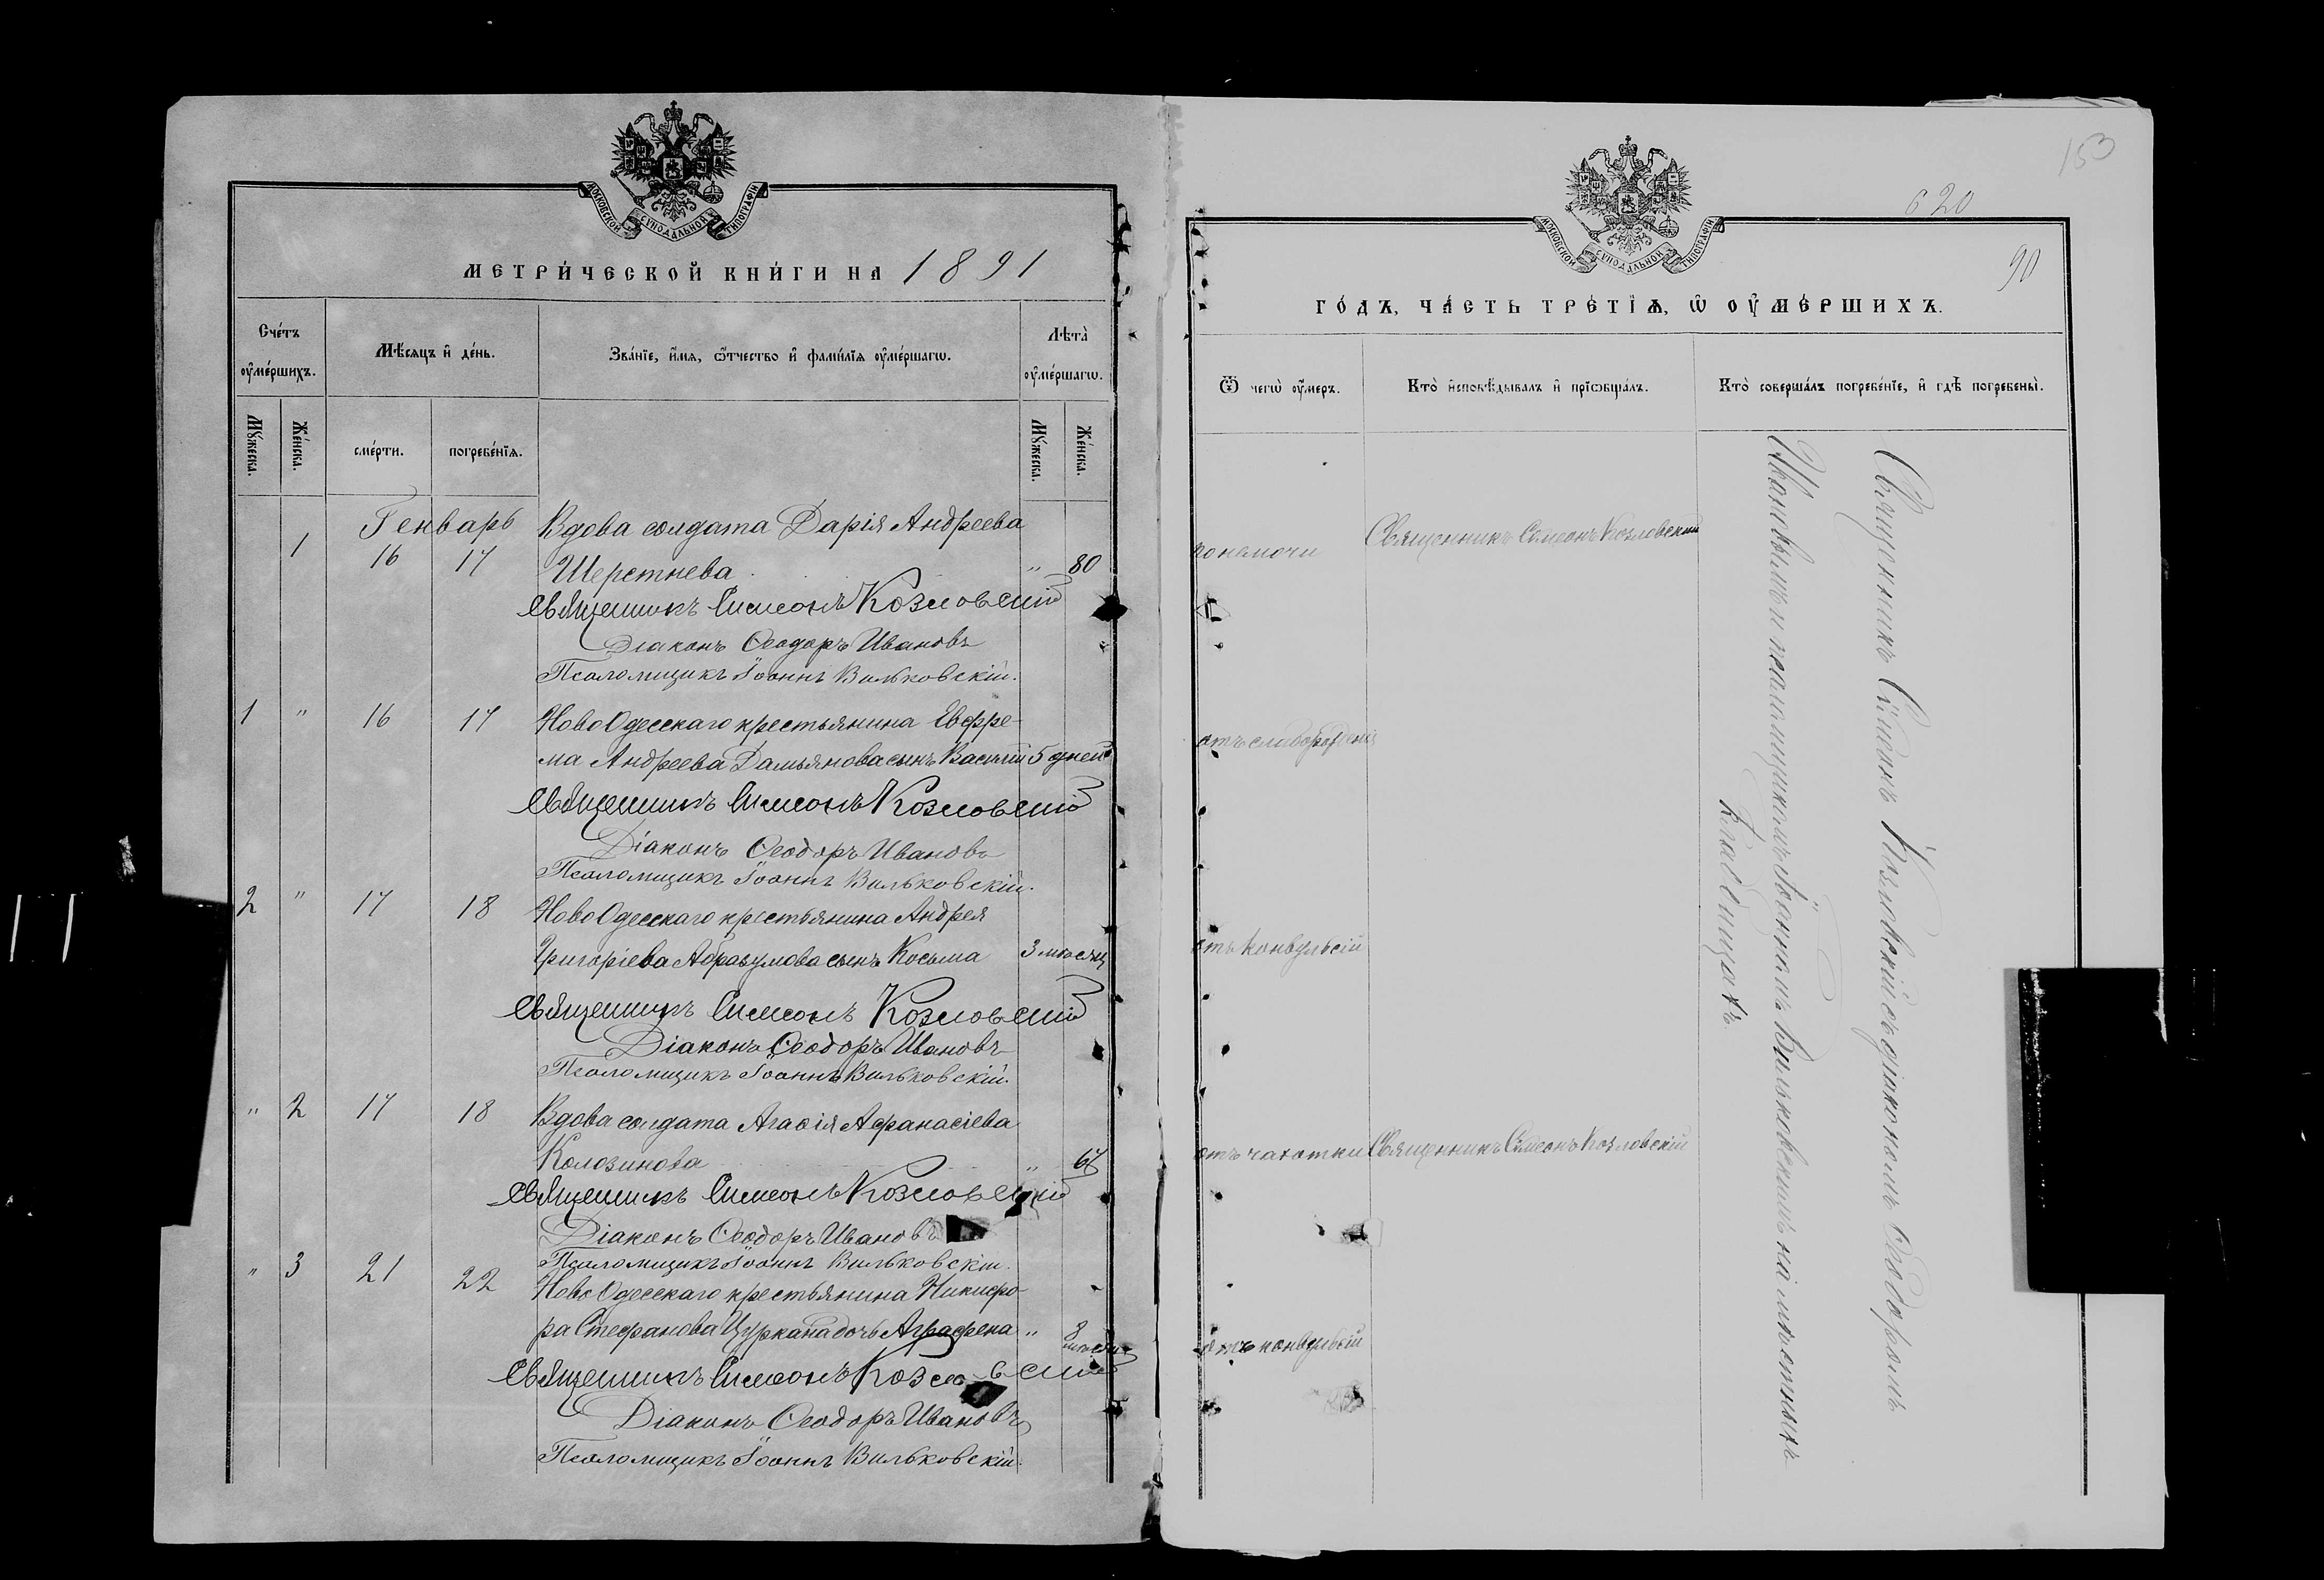 МОСКОВСКОЙ СУНОДАЛЬНОЙ ТИПОГРАФІИ
МЕТРИ́ЧЕСКОЙ КНИ́ГИ НА 1891
Сче́тъ ᲂу҆ме́ршихъ.
Мѣ́сяцъ и҆ де́нь.
Зва́нїе, и҆́мя, ѻ҆́тчество и҆ фами́лїя ᲂу҆ме́ршагѡ.
Лѣта̀ ᲂу҆ме́ршагѡ.
Мꙋ́жеска.
Же́нска.
сме́рти.
погребе́нїя.
Мꙋ́жеска.
Же́нска.
Генварь
Вдова солдата Дарія Андреева
1 16 17 Шерстнева " 80
Священникъ Симеонъ Козловскій
Діаконъ Ѳеодоръ Ивановъ
Псаломщикъ Іоаннъ Вильковскій.
1 " 16 17 Ново Одесскаго крестьянина Евфре-
ма Андреева Дамьянова сынъ Василій 5 дней
Священникъ Симеонъ Козловскій
Діаконъ Ѳеодоръ Ивановъ
Псаломщикъ Іоаннъ Вильковскій.
2 " 17 18 Ново Одесскаго крестьянина Андрея
Григоріева Абразумова сынъ Косьма 3 мѣсяц
Священникъ Симеонъ Козловскій
Діаконъ Ѳеодоръ Ивановъ
Псаломщикъ Іоаннъ Вильковскій.
" 2 17 18 Вдова солдата Агаѳія Афанасіева
Колозинова " 67
Священникъ Симеонъ Козловскій
Діаконъ Ѳеодоръ Ивановъ
Псаломщикъ Іоаннъ Вильковскій.
" 3 21 22 Ново Одесскаго крестьянина Никифо-
ра Стефанова Цуркана дочь Аграфена " 8
Священникъ Симеонъ Козловскій
Діаконъ Ѳеодоръ Ивановъ
Псаломщикъ Іоаннъ Вильковскій.
153
620
90
МОСКОВСКОЙ СУНОДАЛЬНОЙ ТИПОГРАФІИ
ГО́ДЪ, ЧА́СТЬ ТРЕ́ТЇѦ, Ѡ҆ ОУ҆МЕ́РШИХЪ.
Ѿ чегѡ̀ ᲂу҆́меръ.
Кто̀ и҆сповѣ́дывалъ и҆ прїѡбща́лъ.
Кто̀ соверша́лъ погребе́нїе, и҆ гдѣ̀ погребены̀.
Священникъ Симеонъ Козловскій
отъ конвульсій
отъ чахотки Священникъ Симеонъ Козловскій
отъ конвульсій
Священникъ Симеонъ Козловскій съ діакономъ Ѳеодоромъ
Ивановымъ и псаломщикомъ Іоанномъ Вильковскимъ на мѣстныхъ
кладбищахъ